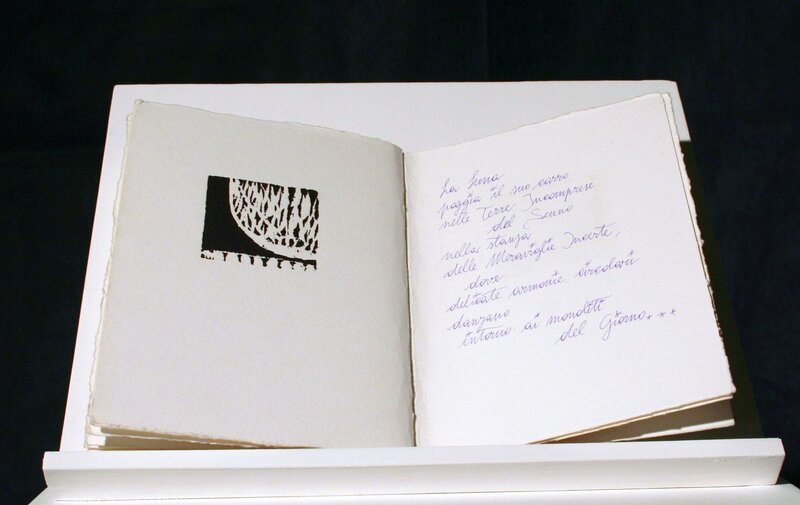 La Luna
poggia il suo carro
nelle Terre Incomprese
del Senno
nella stanza
delle Meraviglie Incerte,
dove
delicate armonie circolari
danzano
intorno ai monoliti
del Giorno***